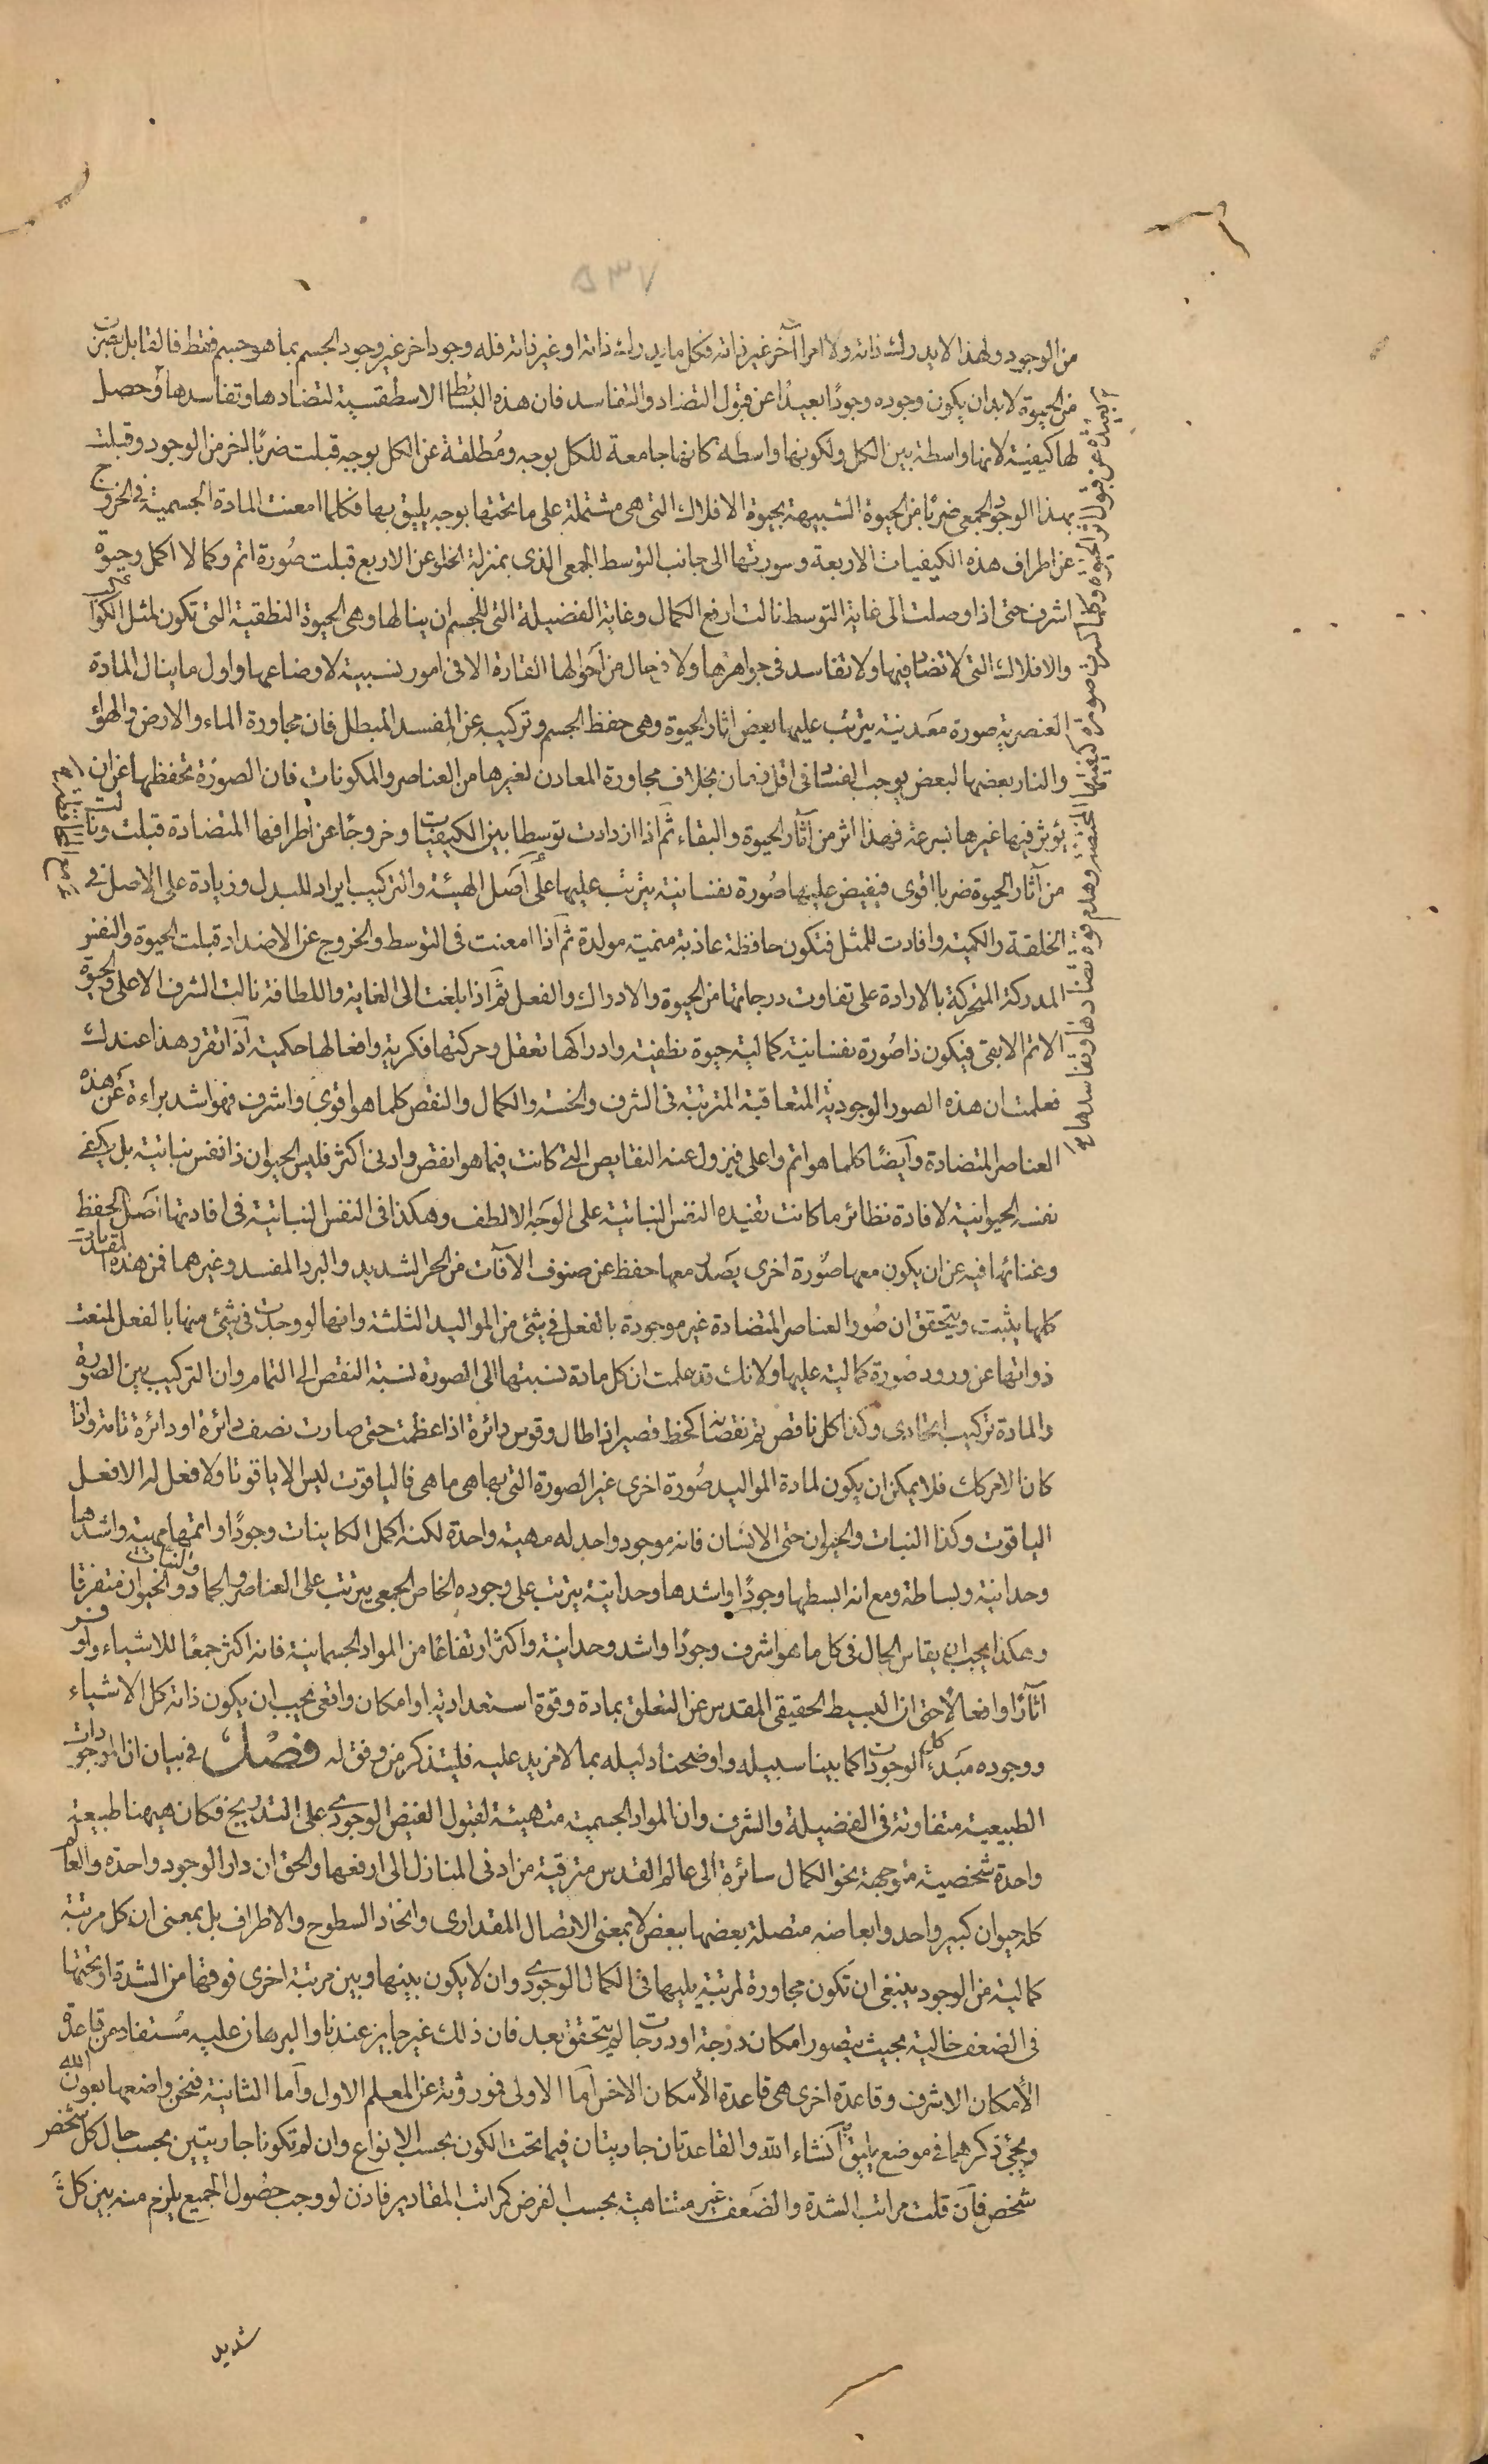 ٥٣٧
من الوجود ولهذا لا يدرك ذاته ولا امرا آخر غير ذاته فكل ما يدرك ذاته او غير ذاته فله وجود اخر غير وجود الجسم بما هو جسم فقط فالقابل لضرب
من الحيوة لابد ان يكون وجوده وجودًا بعيدًا عن قبول التضاد والتفاسد فان هذه البسائط الاسطقسية لتضادها وتفاسدها وحصل
لها كيفية لانها واسطة بين الكل ولكونها واسطه كانها جامعة للكل بوجه ومُطلقة عن الكل بوجه قبلت ضربًا اخر من الوجود وقبلت
بهذا الوجود الجمعى ضربًا من الحيوة الشبيهة بحيوة الافلاك التى هى مشتملة على ما تحتها بوجه يليق بها فكلما امعنت المادة الجسمية فى الخروج
عن اطراف هذه الكيفيات الاربعة وسورتها الى جانب التوسط الجمعى الذى بمنزلة الخلو عن الاربع قبلت صُورة اتم وكمالا اكمل وحيوة
اشرف حتى اذا وصلت الى غاية التوسط نالت ارفع الكمال وغاية الفضيلة التى للجسم ان ينالها وهى الحيوة النطقية التى تكون لمثل الكواكب
والافلاك التى لا تضاد فيها ولا تفاسد فى جواهرها ولا فى حال من احوالها القارة الا فى امور نسبية لاوضاعها واول ما ينال المادة
العنصرية صورة معدنية يترتب عليها بعض اثار الحيوة وهى حفظ الجسم وتركيبه عن المفسد المبطل فان مجاورة الماء والارض والهواء
والنار بعضها لبعض يوجب الفساد فى اقل زمان بخلاف مجاورة المعادن لغيرها من العناصر والمكونات فان الصورة تحفظها عن ان
يؤثر فيها غيرها بسرعة فهذا اثر من آثار الحيوة والبقاء ثم اذا ازدادت توسطا بين الكيفيات وخروجًا عن اطرافها المتضادة قبلت ونالت
من آثار الحيوة ضربا اقوى فيفيض عليها صُورة نفسانية يترتب عليها على أصَل الهيئة والتركيب ايراد للبدل وزيادة على الاصل فى
الخلقة والكمية وافادت للمثل فتكون حافظة غاذية منمية مولدة ثم اذا امعنت فى التوسط والخروج عن الاضداد قبلت الحيوة والنفس
المدركة المتحركة بالارادة على تفاوت درجاتها من الحيوة والادراك والفعل ثم اذا بلغت الى الغاية واللطافة نالت الشرف الاعلى والحيوة
الاتم الابقى فيكون ذا صُورة نفسانية كمالية حيوة نطقية وادراكها تعقل وحركتها فكرية وافعالها حكمية اذا تقرر هذا عندك
فعلمت ان هذه الصور الوجودية المتعاقبة المترتبة فى الشرف والخسة والكمال والنقص كلما هو اقوى واشرف فهو اشد براءة عن هذه
العناصر المتضادة وأيضًا كلما هو اتم واعلى فيزول عنه النقايص التى كانت فيما هو انقص وادنى اكثر فليس الحيوان ذا نفس نباتية بل يكفى
نفسه الحيوانية لافادة نظائر ما كانت تفيده النفس النباتية على الوجه الالطف وهكذا فى النفس النباتية فى افادتها اصَل الحفظ
وغنائها فيه عن ان يكون معها صورة اخرى يصدر معها حفظ عن صنوف الآفات من الحر الشديد والبرد المفسد وغيرهما فمن هذه المقدمات
كلها يثبت ويتحقق ان صُور العناصر المتضادة غير موجودة بالفعل فى شئ من المواليد الثلثة وانها لو وجدت فى شئ منها بالفعل لمنعت
ذواتها عن ورود صورة كمالية عليها ولانك قد علمت ان كل مادة نسبتها الى الصورة نسبة النقص الى التمام وان التركيب بين الصورة
والمادة تركيب اتحادى وكذا كل ناقص تم نقصانه كخط قصير اذا طال وقوس دائرة اذا عظمت حتى صارت نصف دائرة او دائرة تامة واذا
كان الامر كك فلا يمكن ان يكون لمادة المواليد صُورة اخرى غير الصورة التى بها هى ما هى فالياقوت ليس الا ياقوتا ولا فعل له الا فعل
الياقوت وكذا النبات والحيوان حتى الانسان فانه موجود واحد له مهية واحدة لكنه اكمل الكاينات وجودًا واتمها مهية واشدها
وحدانية وبساطة ومع انه ابسطها وجودًا واشدها وحدانية يترتب على وجوده الخاص الجمعى ما يترتب على العناصر والجماد والنبات والحيوان متفرقا
وهكذا يجب ان يقاس الحال فى كل ما هو اشرف وجودًا واشد وحدانية واكثر ارتفاعًا من المواد الجسمانية فانه اكثر جمعًا للاشياء واوفر
آثارًا وافعالا حتى ان البسيط الحقيقى المقدس عن التعلق بمادة وقوة استعدادية او امكان واقعى يجب ان يكون ذاته كل الاشياء
ووجوده مبَدء كل الوجودات كما بينا سبيله واوضحنا دليله بما لا مزيد عليه فليتذكر من وفق له فصل فى بيان ان الموجودات
الطبيعية متفاوتة فى الفضيلة والشرف وان المواد الجسمية متهيئة لقبول الفيض الوجودى على التدريج فكان هيهنا طبيعة
واحدة شخصية متوجهة نحو الكمال سائرة الى عالم القدس مترقية من ادنى المنازل الى ارفعها والحق ان دار الوجود واحدة والعالم
كله حيوان كبير واحد وابعاضه متصلة بعضها ببعض لا بمعنى الاتصال المقدارى واتحاد السطوح والاطراف بل بمعنى ان كل مرتبة
كمالية من الوجود ينبغى ان تكون مجاورة لمرتبة يليها فى الكمال الوجودى وان لا يكون بينها وبين مرتبة اخرى فوقها من الشدة او تحتها
فى الضعف خالية بحيث يتصور امكان درجة او درجات لم يتحقق بعد فان ذلك غير جايز عندنا والبرهان عليه مُستفاد من قاعدة
الأمكان الاشرف وقاعدة اخرى هى قاعدة الأمكان الاخس اما الاولى فموروثة عن المعلم الاول وأما الثانية فنحن واضعها بعون الله
ويجئ ذكرهما فى موضع يليق انشاء الله والقاعدتان جاريتان فيما تحت الكون بحسب الانواع وان لم تكونا جاريتين بحسب حال كل شخص
شخص فأن قلت مراتب الشدة والضعف غير متناهية بحسب الفرض كمراتب المقادير فاذن لو وجب حصُول الجميع يلزم منه بين كل
شديد
بعيدة عن قبول اثر الحيوة وكلما انكسرت صورة كيفيتها المختصة وهدم قوة تضادها وتفاسدها